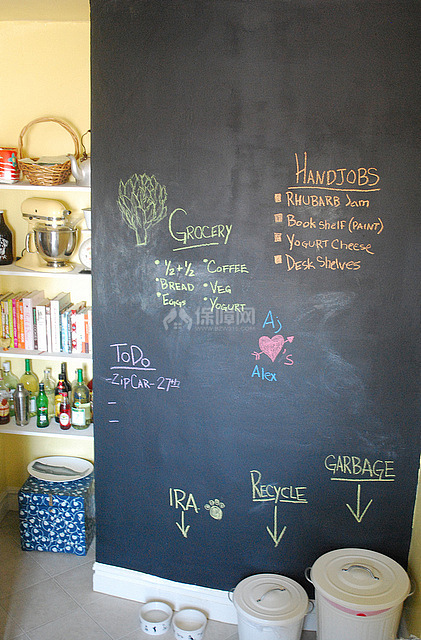 HANDJOBS
RHUBARB Jam
Bookshelf (PAINT)
YOGURT Cheese
Desk Shelves
GROCERY
½ + ½
BREAD
Eggs
COFFEE
VEG
YOGURT
保障网
Aj
's
Alex
ToDo
-ZipCAR - 27th
GARBAGE
RECYCLE
IRA